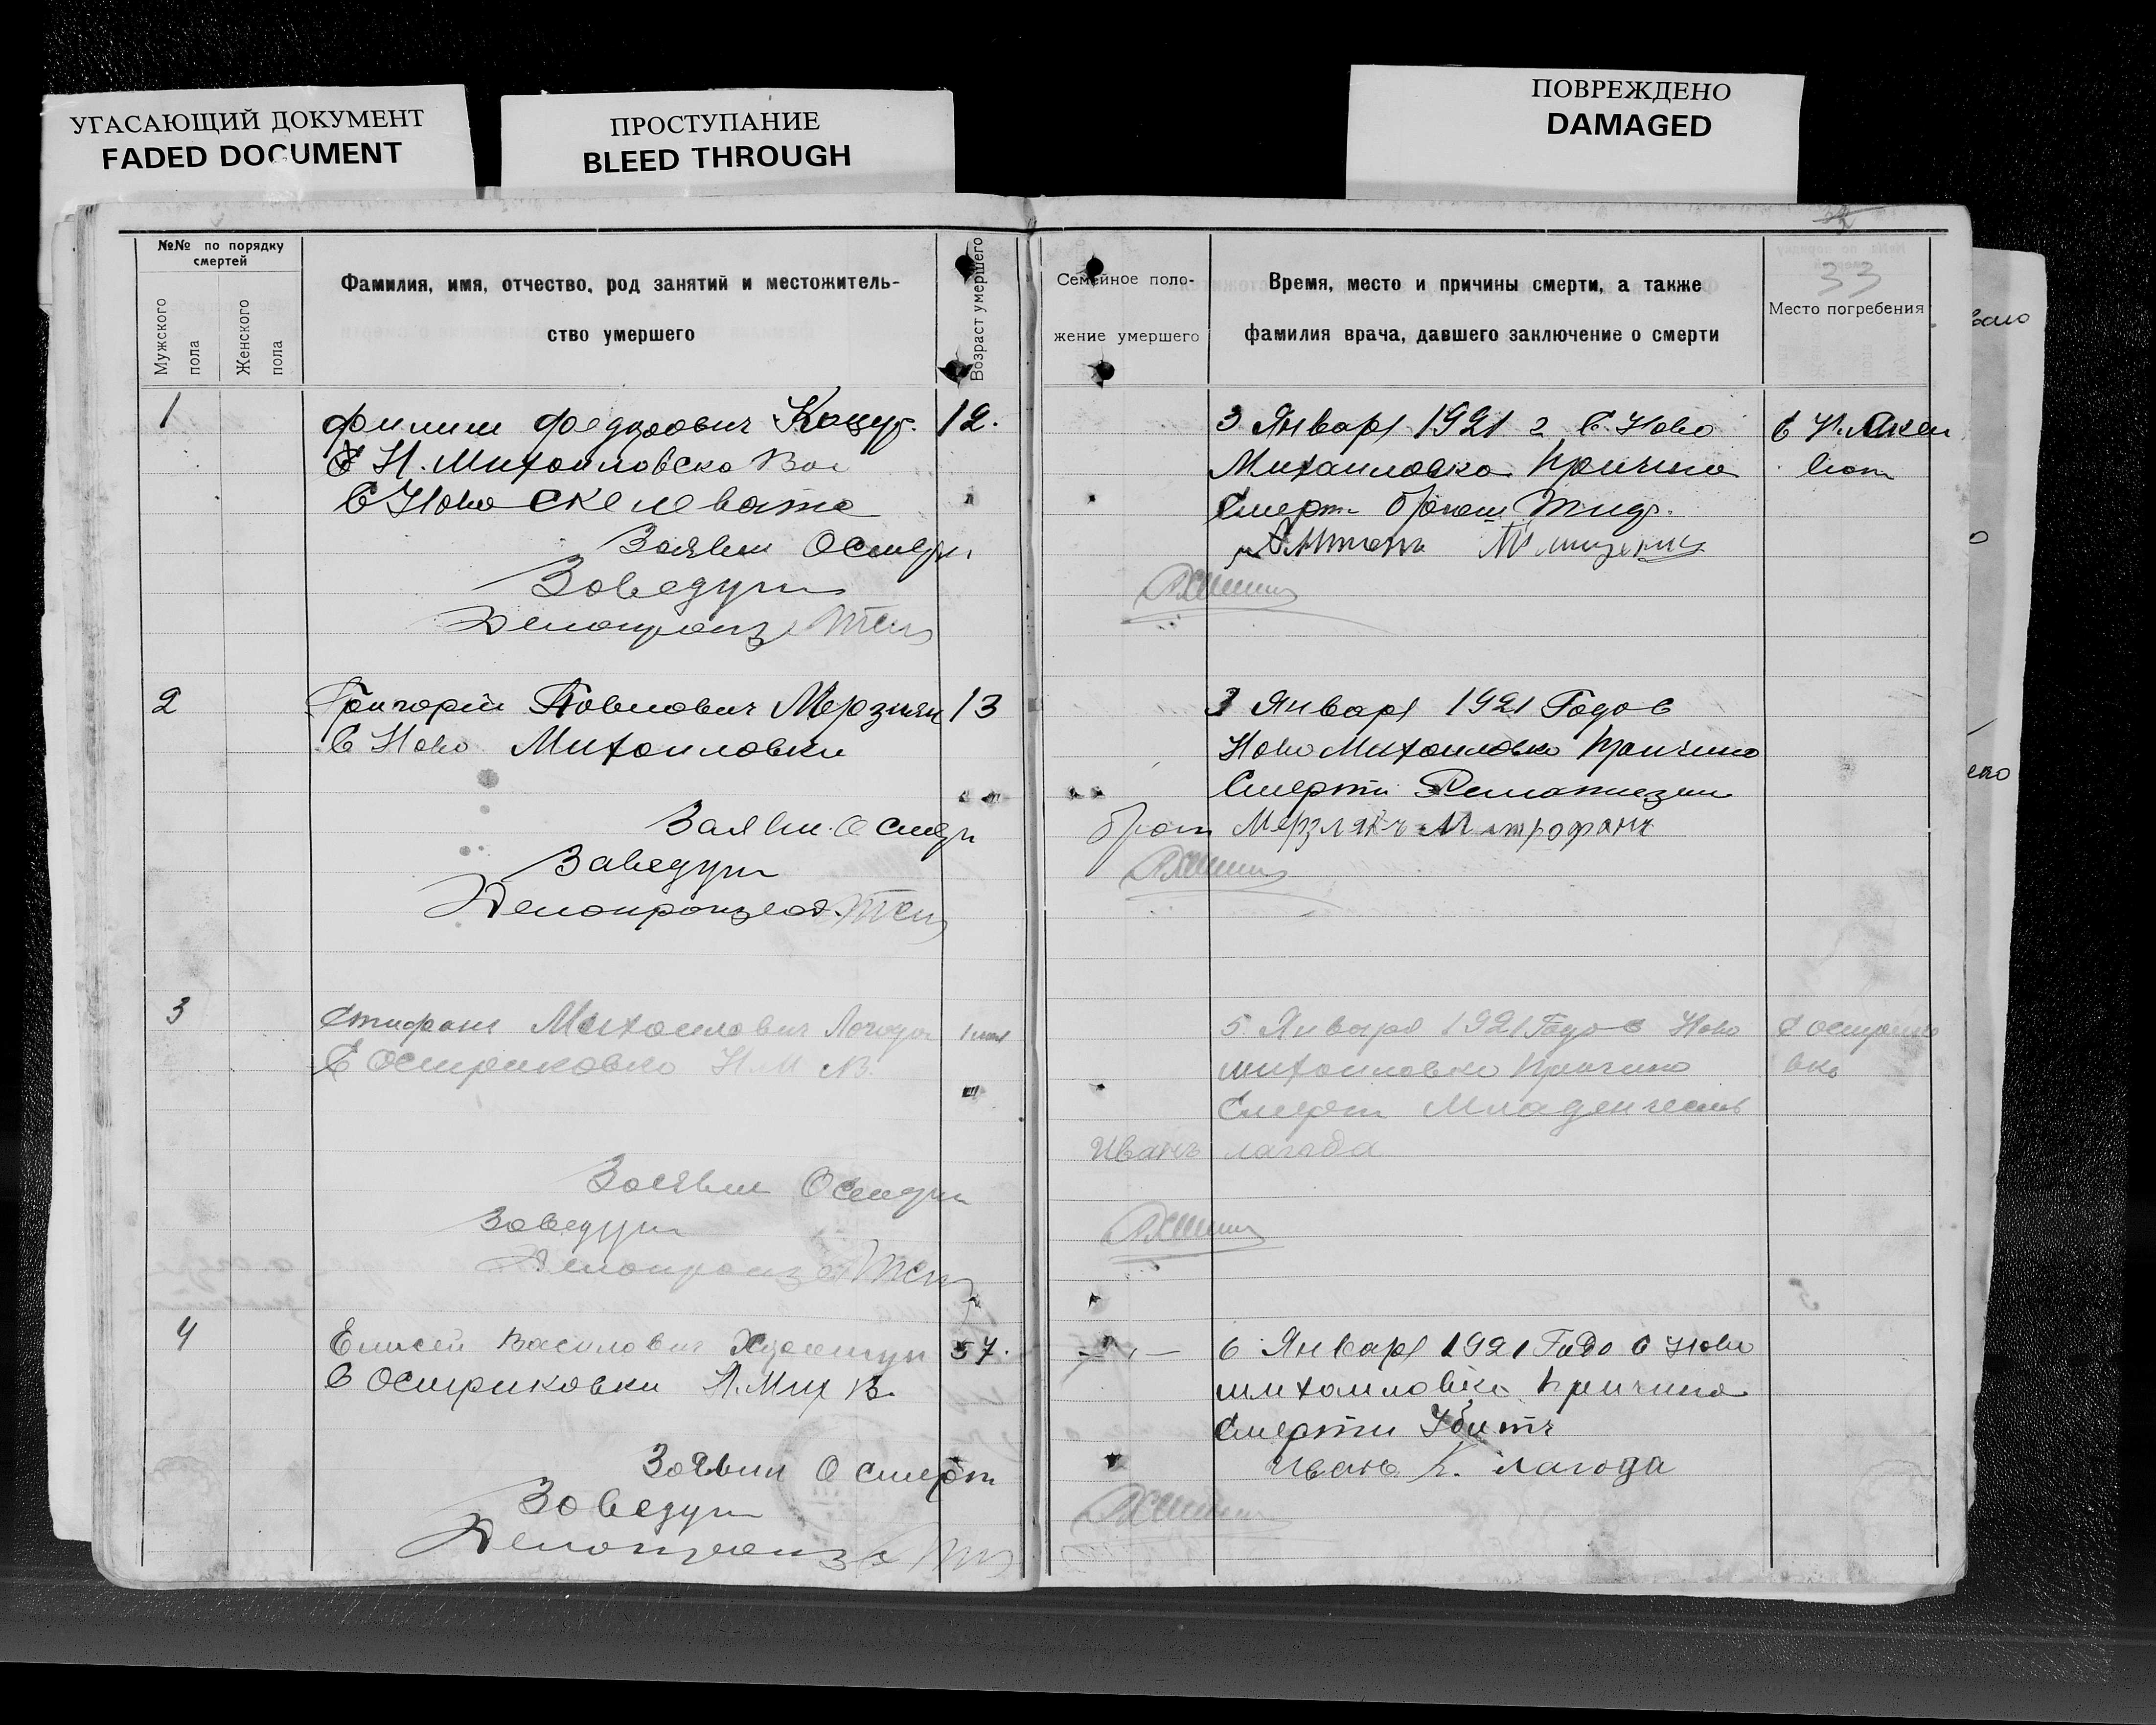 УГАСАЮЩИЙ ДОКУМЕНТ
FADED DOCUMENT
ПРОСТУПАНИЕ
BLEED THROUGH
ПОВРЕЖДЕНО
DAMAGED
№№ по порядку
смертей
Мужского
пола
Женского
пола
Фамилия, имя, отчество, род занятий и местожитель-
ство умершего
Возраст умершего
Семейное поло-
жение умершего
Время, место и причины смерти, а также
фамилия врача, давшего заключение о смерти
33
Место погребения
1
Филип Федорович 12.
С Н. Михаиловска Вол
С Ново Скелевата
Заявил О смерт
Заведущ
Делопроиз
3 Января 1921 г С. Ново
Михаиловка Причина
Смерт
С Н.
2
Григорій Павлович Мерзляк 13
С Ново Михаиловки
Заявил О смерт
Заведущ
Делопроизвод.
3 Января 1921 Года С
Ново Михаиловка Причина
Смерти
брат Мерзлякъ Митрофанъ
3
Стифан Михаилович Лагода
С Остриковка Н М В.
Заявил О смерти
Заведущ
Делопроизв
5 Января 1921 Года С Ново
михаиловка Причина
Смерт Младенческ
Иванъ лагода
С Острико
вка
4
Елисей Василович 57.
С Остриковки Н. Мих В.
Заявил О смерт
Заведущ
Делопроизв
6 Января 1921 Года С Ново
михаиловка Причина
Смерти Убитъ
Иванъ К. лагода